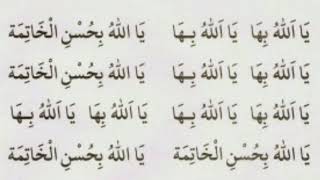 يَا اَللّٰهُ بِهَا يَا اَللّٰهُ بِهَا يَا اَللّٰهُ بِحُسْنِ الْخَاتِمَة
يَا اَللّٰهُ بِهَا يَا اَللّٰهُ بِهَا يَا اَللّٰهُ بِحُسْنِ الْخَاتِمَة
يَا اَللّٰهُ بِهَا يَا اَللّٰهُ بِهَا يَا اَللّٰهُ بِهَا يَا اَللّٰهُ بِهَا
يَا اَللّٰهُ بِحُسْنِ الْخَاتِمَة يَا اَللّٰهُ بِحُسْنِ الْخَاتِمَة